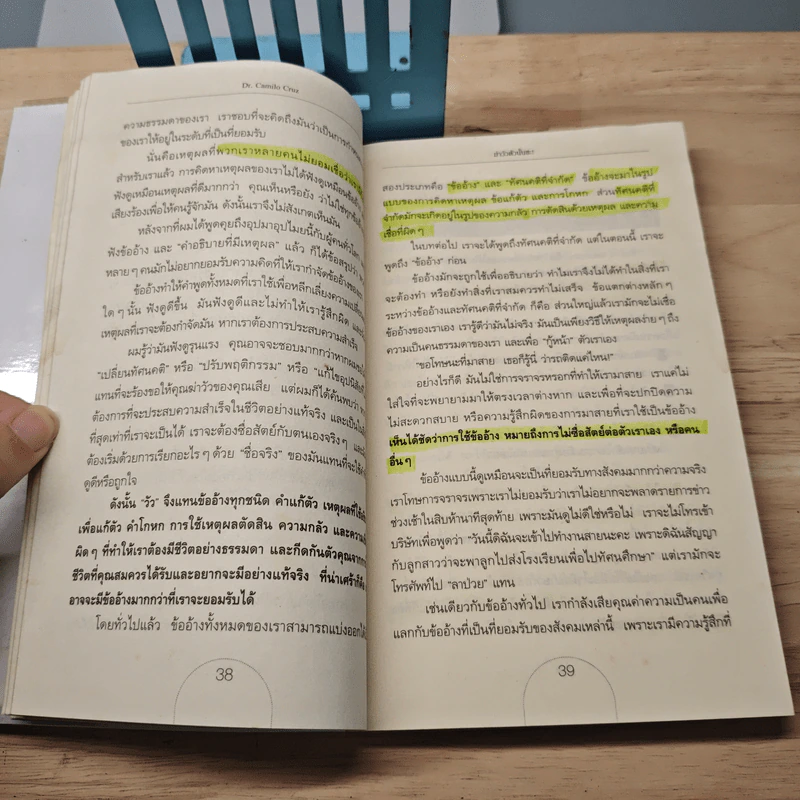 Dr. Camilo Cruz
ความธรรมดาของเรา เราชอบที่จะคิดถึงมันว่าเป็นการกำหนด
ของเราให้อยู่ในระดับที่เป็นที่ยอมรับ
นั่นคือเหตุผลที่พวกเราหลายคนไม่ยอมเชื่อว่า
สำหรับเราแล้ว การคิดหาเหตุผลของเราไม่ได้ฟังดูเหมือนข้ออ้าง
ฟังดูเหมือนเหตุผลที่ดีมากกว่า คุณเห็นหรือยัง ว่าไม่ใช่ทุกข้อ
เสียงร้องเพื่อให้คนรู้จักมัน ดังนั้นเราจึงไม่สังเกตเห็นมัน
หลังจากที่ผมได้พูดคุยถึงอุปมาอุปไมยนี้กับผู้คนทั่วโลก
ฟังข้ออ้าง และ “คำอธิบายที่มีเหตุผล” แล้ว ก็ได้ข้อสรุปว่า
หลายๆ คนมักไม่อยากยอมรับความคิดที่ให้เรากำจัดข้ออ้างของ
ข้ออ้างทำให้คำพูดทั้งหมดที่เราใช้เพื่อหลีกเลี่ยงความเปลี่ยน
ใดๆ นั้น ฟังดูดีขึ้น มันฟังดูดีและไม่ทำให้เรารู้สึกผิด และ
เหตุผลที่เราจะต้องกำจัดมัน หากเราต้องการประสบความสำเร็จ
ผมรู้ว่ามันฟังดูรุนแรง คุณอาจจะชอบมากกว่าหากผม
“เปลี่ยนทัศนคติ” หรือ “ปรับพฤติกรรม” หรือ “แก้ไขอุปนิสัย
แทนที่จะร้องขอให้คุณฆ่าวัวของคุณเสีย แต่ผมก็ได้ค้นพบว่า
ต้องการที่จะประสบความสำเร็จในชีวิตอย่างแท้จริง และเป็น
ที่สุดเท่าที่เราจะเป็นได้ เราจะต้องซื่อสัตย์กับตนเองจริงๆ
ต้องเริ่มด้วยการเรียกอะไรๆ ด้วย “ชื่อจริง” ของมันแทนที่จะใช้
ดูดีหรือถูกใจ
ดังนั้น “วัว” จึงแทนข้ออ้างทุกชนิด คำแก้ตัว เหตุผลที่ใช้
เพื่อแก้ตัว คำโกหก การใช้เหตุผลตัดสิน ความกลัว และความ
ผิดๆ ที่ทำให้เราต้องมีชีวิตอย่างธรรมดา และกีดกันตัวคุณจาก
ชีวิตที่คุณสมควรได้รับและอยากจะมีอย่างแท้จริง ที่น่าเศร้าก็คือ
อาจจะมีข้ออ้างมากกว่าที่เราจะยอมรับได้
โดยทั่วไปแล้ว ข้ออ้างทั้งหมดของเราสามารถแบ่งออกได้
38
ฆ่าวัวตัวนั้นซะ
สองประเภทคือ “ข้ออ้าง” และ “ทัศนคติที่จำกัด” ข้ออ้างจะมาในรูป
แบบของการคิดหาเหตุผล ข้อแก้ตัว และการโกหก ส่วนทัศนคติที่
จำกัดมักจะเกิดอยู่ในรูปของความกลัว การตัดสินด้วยเหตุผล และความ
เชื่อที่ผิดๆ
ในบทต่อไป เราจะได้พูดถึงทัศนคติที่จำกัด แต่ในตอนนี้ เราจะ
พูดถึง “ข้ออ้าง” ก่อน
ข้ออ้างมักจะถูกใช้เพื่ออธิบายว่า ทำไมเราจึงไม่ได้ทำในสิ่งที่เรา
จะต้องทำ หรือยังทำสิ่งที่เราสมควรทำไม่เสร็จ ข้อแตกต่างหลักๆ
ระหว่างข้ออ้างและทัศนคติที่จำกัด ก็คือ ส่วนใหญ่แล้วเรามักจะไม่เชื่อ
ข้ออ้างของเราเอง เรารู้ดีว่ามันไม่จริง มันเป็นเพียงวิธีให้เหตุผลง่ายๆ ถึง
ความเป็นคนธรรมดาของเรา และเพื่อ “กู้หน้า” ตัวเราเอง
“ขอโทษนะที่มาสาย เธอก็รู้นี่ ว่ารถติดแค่ไหน!”
อย่างไรก็ดี มันไม่ใช่การจราจรหรอกที่ทำให้เรามาสาย เราแค่ไม่
ใส่ใจที่จะพยายามมาให้ตรงเวลาต่างหาก และเพื่อที่จะปกปิดความ
ไม่สะดวกสบาย หรือความรู้สึกผิดของการมาสายที่เราใช้เป็นข้ออ้าง
เห็นได้ชัดว่าการใช้ข้ออ้าง หมายถึงการไม่ซื่อสัตย์ต่อตัวเราเอง หรือคน
อื่นๆ
ข้ออ้างแบบนี้ดูเหมือนจะเป็นที่ยอมรับทางสังคมมากกว่าความจริง
เราโทษการจราจรเพราะเราไม่ยอมรับว่าเราไม่อยากจะพลาดรายการข่าว
ช่วงเช้าในสิบห้านาทีสุดท้าย เพราะมันดูไม่ดีใช่หรือไม่ เราจะไม่โทรเข้า
บริษัทเพื่อพูดว่า “วันนี้ดิฉันจะเข้าไปทำงานสายนะคะ เพราะดิฉันสัญญา
กับลูกสาวว่าจะพาลูกไปส่งโรงเรียนเพื่อไปทัศนศึกษา” แต่เรามักจะ
โทรศัพท์ไป “ลาป่วย” แทน
เช่นเดียวกับข้ออ้างทั่วไป เรากำลังเสียคุณค่าความเป็นคนเพื่อ
แลกกับข้ออ้างที่เป็นที่ยอมรับของสังคมเหล่านี้ เพราะเรามีความรู้สึกที่
39